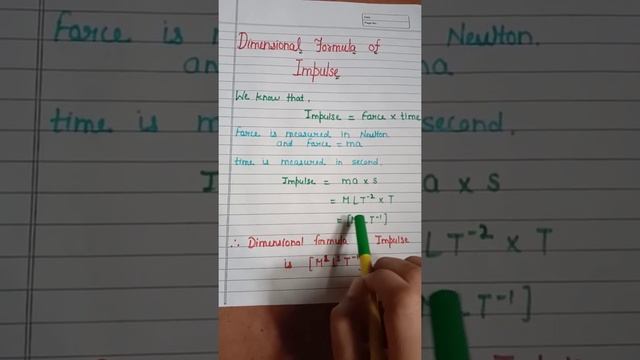 Dimensional Formula of
Impulse
We know that,
Impulse = Farce × time
Farce is measured in Newton
and Farce = ma
time is measured in second.
Impulse = ma × s
= M L T⁻² × T
= [M L T⁻¹]
∴ Dimensional formula Impulse
is [M¹ L¹ T⁻¹